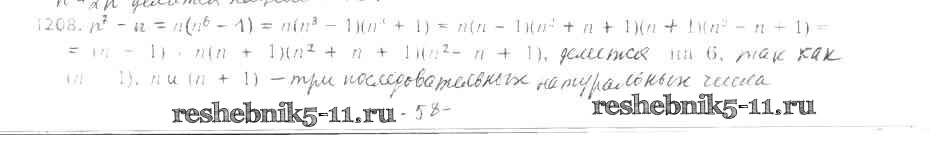 n - 2n делится
1208. n⁷ - n = n(n⁶ - 1) = n(n³ - 1)(n³ + 1) = n(n - 1)(n² + n + 1)(n + 1)(n² - n + 1) =
= (n - 1) · n(n + 1)(n² + n + 1)(n² - n + 1), делится на 6, так как
(n - 1), n и (n + 1) - три последовательных натуральных числа
reshebnik5-11.ru - 58 - reshebnik5-11.ru